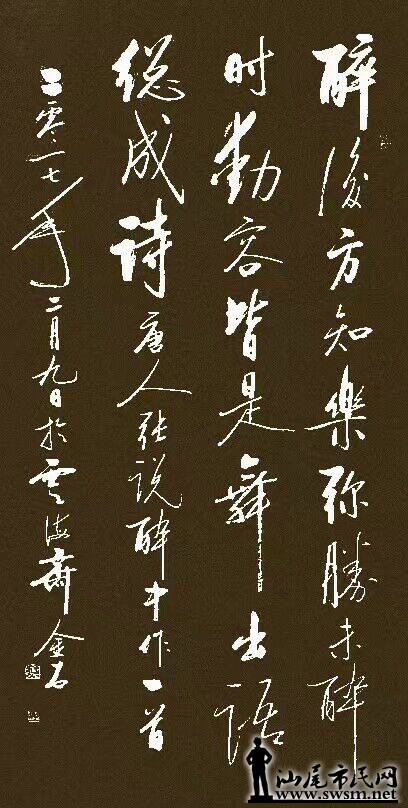 醉後方知樂弥勝未醉
时動容皆是舞出語
總成诗唐人张说醉中作一首
二零一七年二月九日於雲海齋金石
汕尾市民网
www.swsm.net